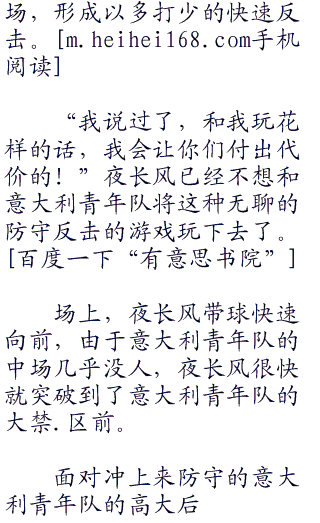 场，形成以多打少的快速反
击。[m.heihei168.com手机
阅读]
“我说过了，和我玩花
样的话，我会让你们付出代
价的！”夜长风已经不想和
意大利青年队将这种无聊的
防守反击的游戏玩下去了。
[百度一下“有意思书院”]
场上，夜长风带球快速
向前，由于意大利青年队的
中场几乎没人，夜长风很快
就突破到了意大利青年队的
大禁.区前。
面对冲上来防守的意大
利青年队的高大后